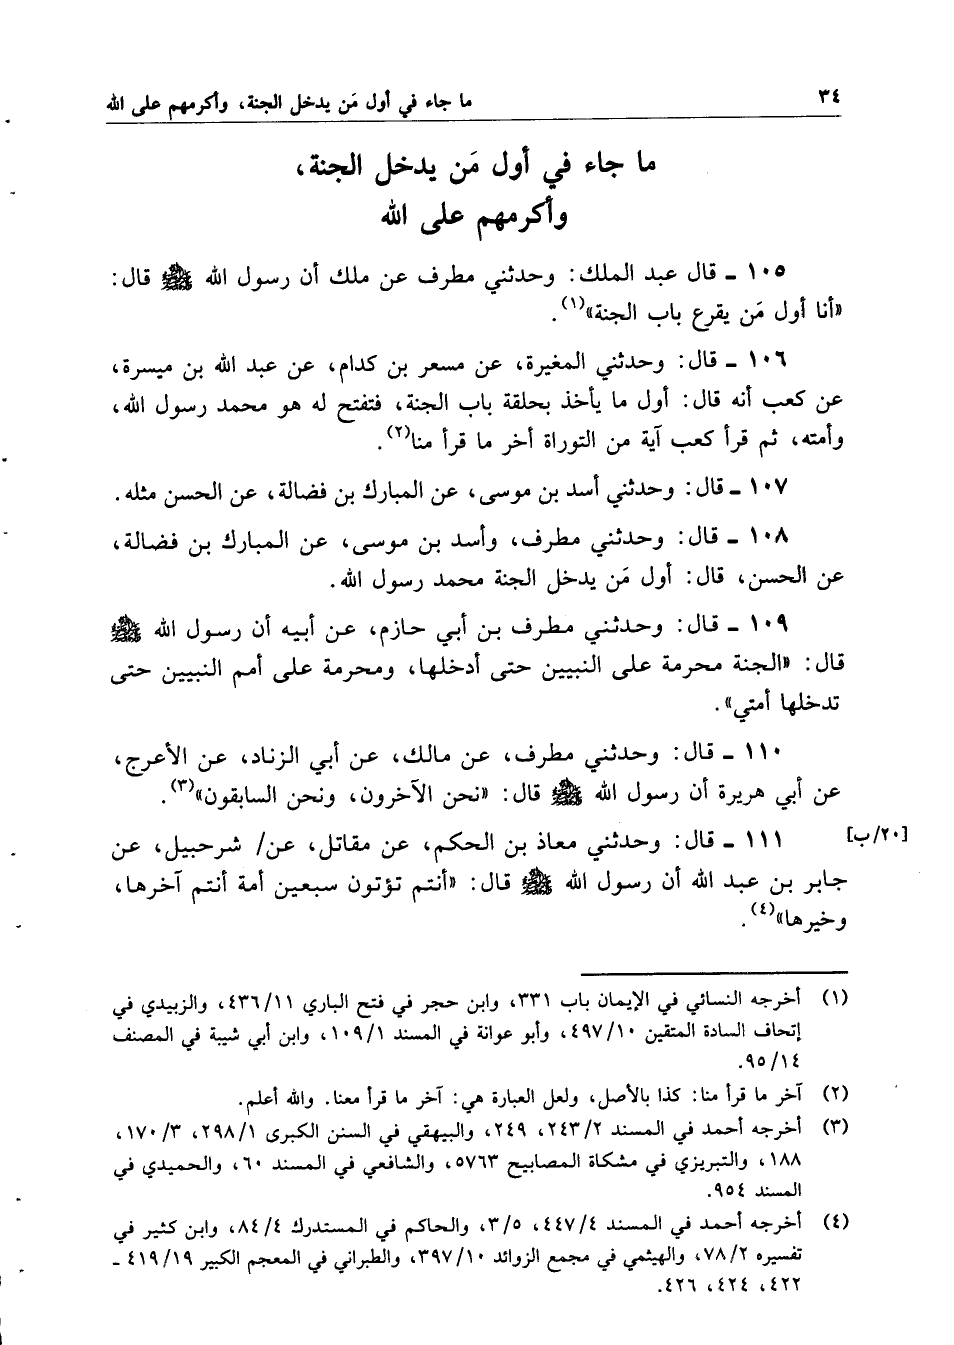 ٣٤
ما جاء في أول مَن يدخل الجنة، وأكرمهم على الله
ما جاء في أول مَن يدخل الجنة،
وأكرمهم على الله
١٠٥ ـ قال عبد الملك: وحدثني مطرف عن ملك أن رسول الله ﷺ قال:
«أنا أول مَن يقرع باب الجنة»(١).
١٠٦ ـ قال: وحدثني المغيرة، عن مسعر بن كدام، عن عبد الله بن ميسرة،
عن كعب أنه قال: أول ما يأخذ بحلقة باب الجنة، فتفتح له هو محمد رسول الله،
وأمته، ثم قرأ كعب آية من التوراة أخر ما قرأ منا(٢).
١٠٧ ـ قال: وحدثني أسد بن موسى، عن المبارك بن فضالة، عن الحسن مثله.
١٠٨ ـ قال: وحدثني مطرف، وأسد بن موسى، عن المبارك بن فضالة،
عن الحسن، قال: أول مَن يدخل الجنة محمد رسول الله.
١٠٩ ـ قال: وحدثني مطرف بن أبي حازم، عن أبيه أن رسول الله ﷺ
قال: «الجنة محرمة على النبيين حتى أدخلها، ومحرمة على أمم النبيين حتى
تدخلها أمتي».
١١٠ ـ قال: وحدثني مطرف، عن مالك، عن أبي الزناد، عن الأعرج،
عن أبي هريرة أن رسول الله ﷺ قال: «نحن الآخرون، ونحن السابقون»(٣).
١١١ ـ قال: وحدثني معاذ بن الحكم، عن مقاتل، عن/ شرحبيل، عن [٢٠/ب]
جابر بن عبد الله أن رسول الله ﷺ قال: «أنتم تؤتون سبعين أمة أنتم آخرها،
وخيرها»(٤).
(١) أخرجه النسائي في الإيمان باب ٣٣١، وابن حجر في فتح الباري ٤٣٦/١١، والزبيدي في
إتحاف السادة المتقين ٤٩٧/١٠، وأبو عوانة في المسند ١٠٩/١، وابن أبي شيبة في المصنف
٩٥/١٤.
(٢) آخر ما قرأ منا: كذا بالأصل، ولعل العبارة هي: آخر ما قرأ معنا. والله أعلم.
(٣) أخرجه أحمد في المسند ٢٤٣/٢، ٢٤٩، والبيهقي في السنن الكبرى ٢٩٨/١، ١٧٠/٣،
١٨٨، والتبريزي في مشكاة المصابيح ٥٧٦٣، والشافعي في المسند ٦٠، والحميدي في
المسند ٩٥٤.
(٤) أخرجه أحمد في المسند ٤٤٧/٤، ٣/٥، والحاكم في المستدرك ٨٤/٤، وابن كثير في
تفسيره ٧٨/٢، والهيثمي في مجمع الزوائد ٣٩٧/١٠، والطبراني في المعجم الكبير ٤١٩/١٩ ـ
٤٢٢، ٤٢٤، ٤٢٦.